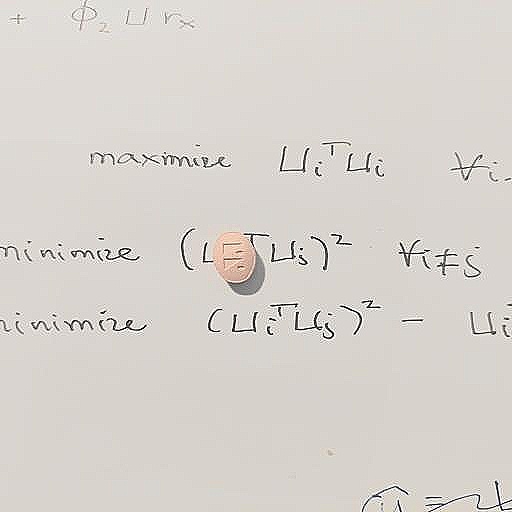 + ϕ₂ ⊔ rₓ
maximize ⊔ᵢᵀ⊔ᵢ ∀i
minimize ( ᵀ⊔ⱼ)² ∀i≠j
minimize (⊔ᵢᵀ⊔ⱼ)² − ⊔ᵢᵀ